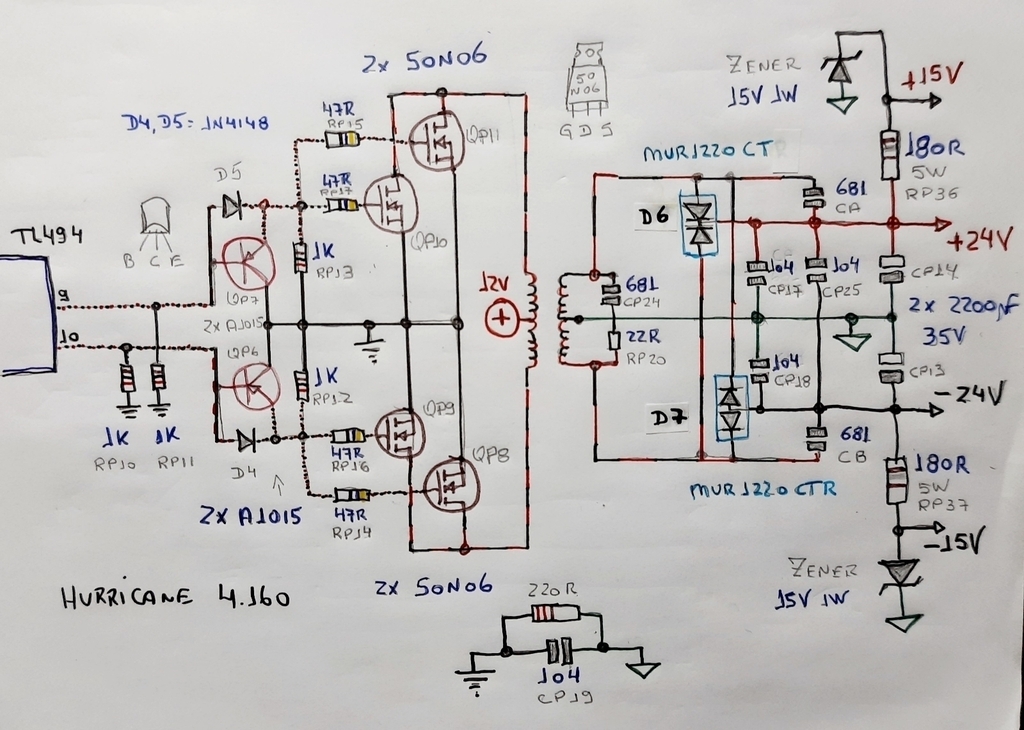 2x 50N06
ZENER
15V 1W
+15V
D4, D5= 1N4148
47R
RP15
QP11
50
N06
G D S
MUR1220 CT
180R
5W
RP36
D5
47R
RP17
QP10
D6
681
CA
+24V
TL494
B C E
1K
RP13
QP7
12V
+
681
CP24
104
CP17
104
CP25
CP14
9
2x A1015
2x 2200µF
35V
10
QP6
22R
RP20
104
CP18
CP13
1K
RP12
QP9
-24V
D7
1K
RP10
1K
RP11
D4
47R
RP16
QP8
681
CB
180R
5W
RP37
2x A1015
47R
RP14
MUR1220CTR
-15V
HURRICANE 4.160
2x 50N06
220R
ZENER
15V 1W
104
CP19